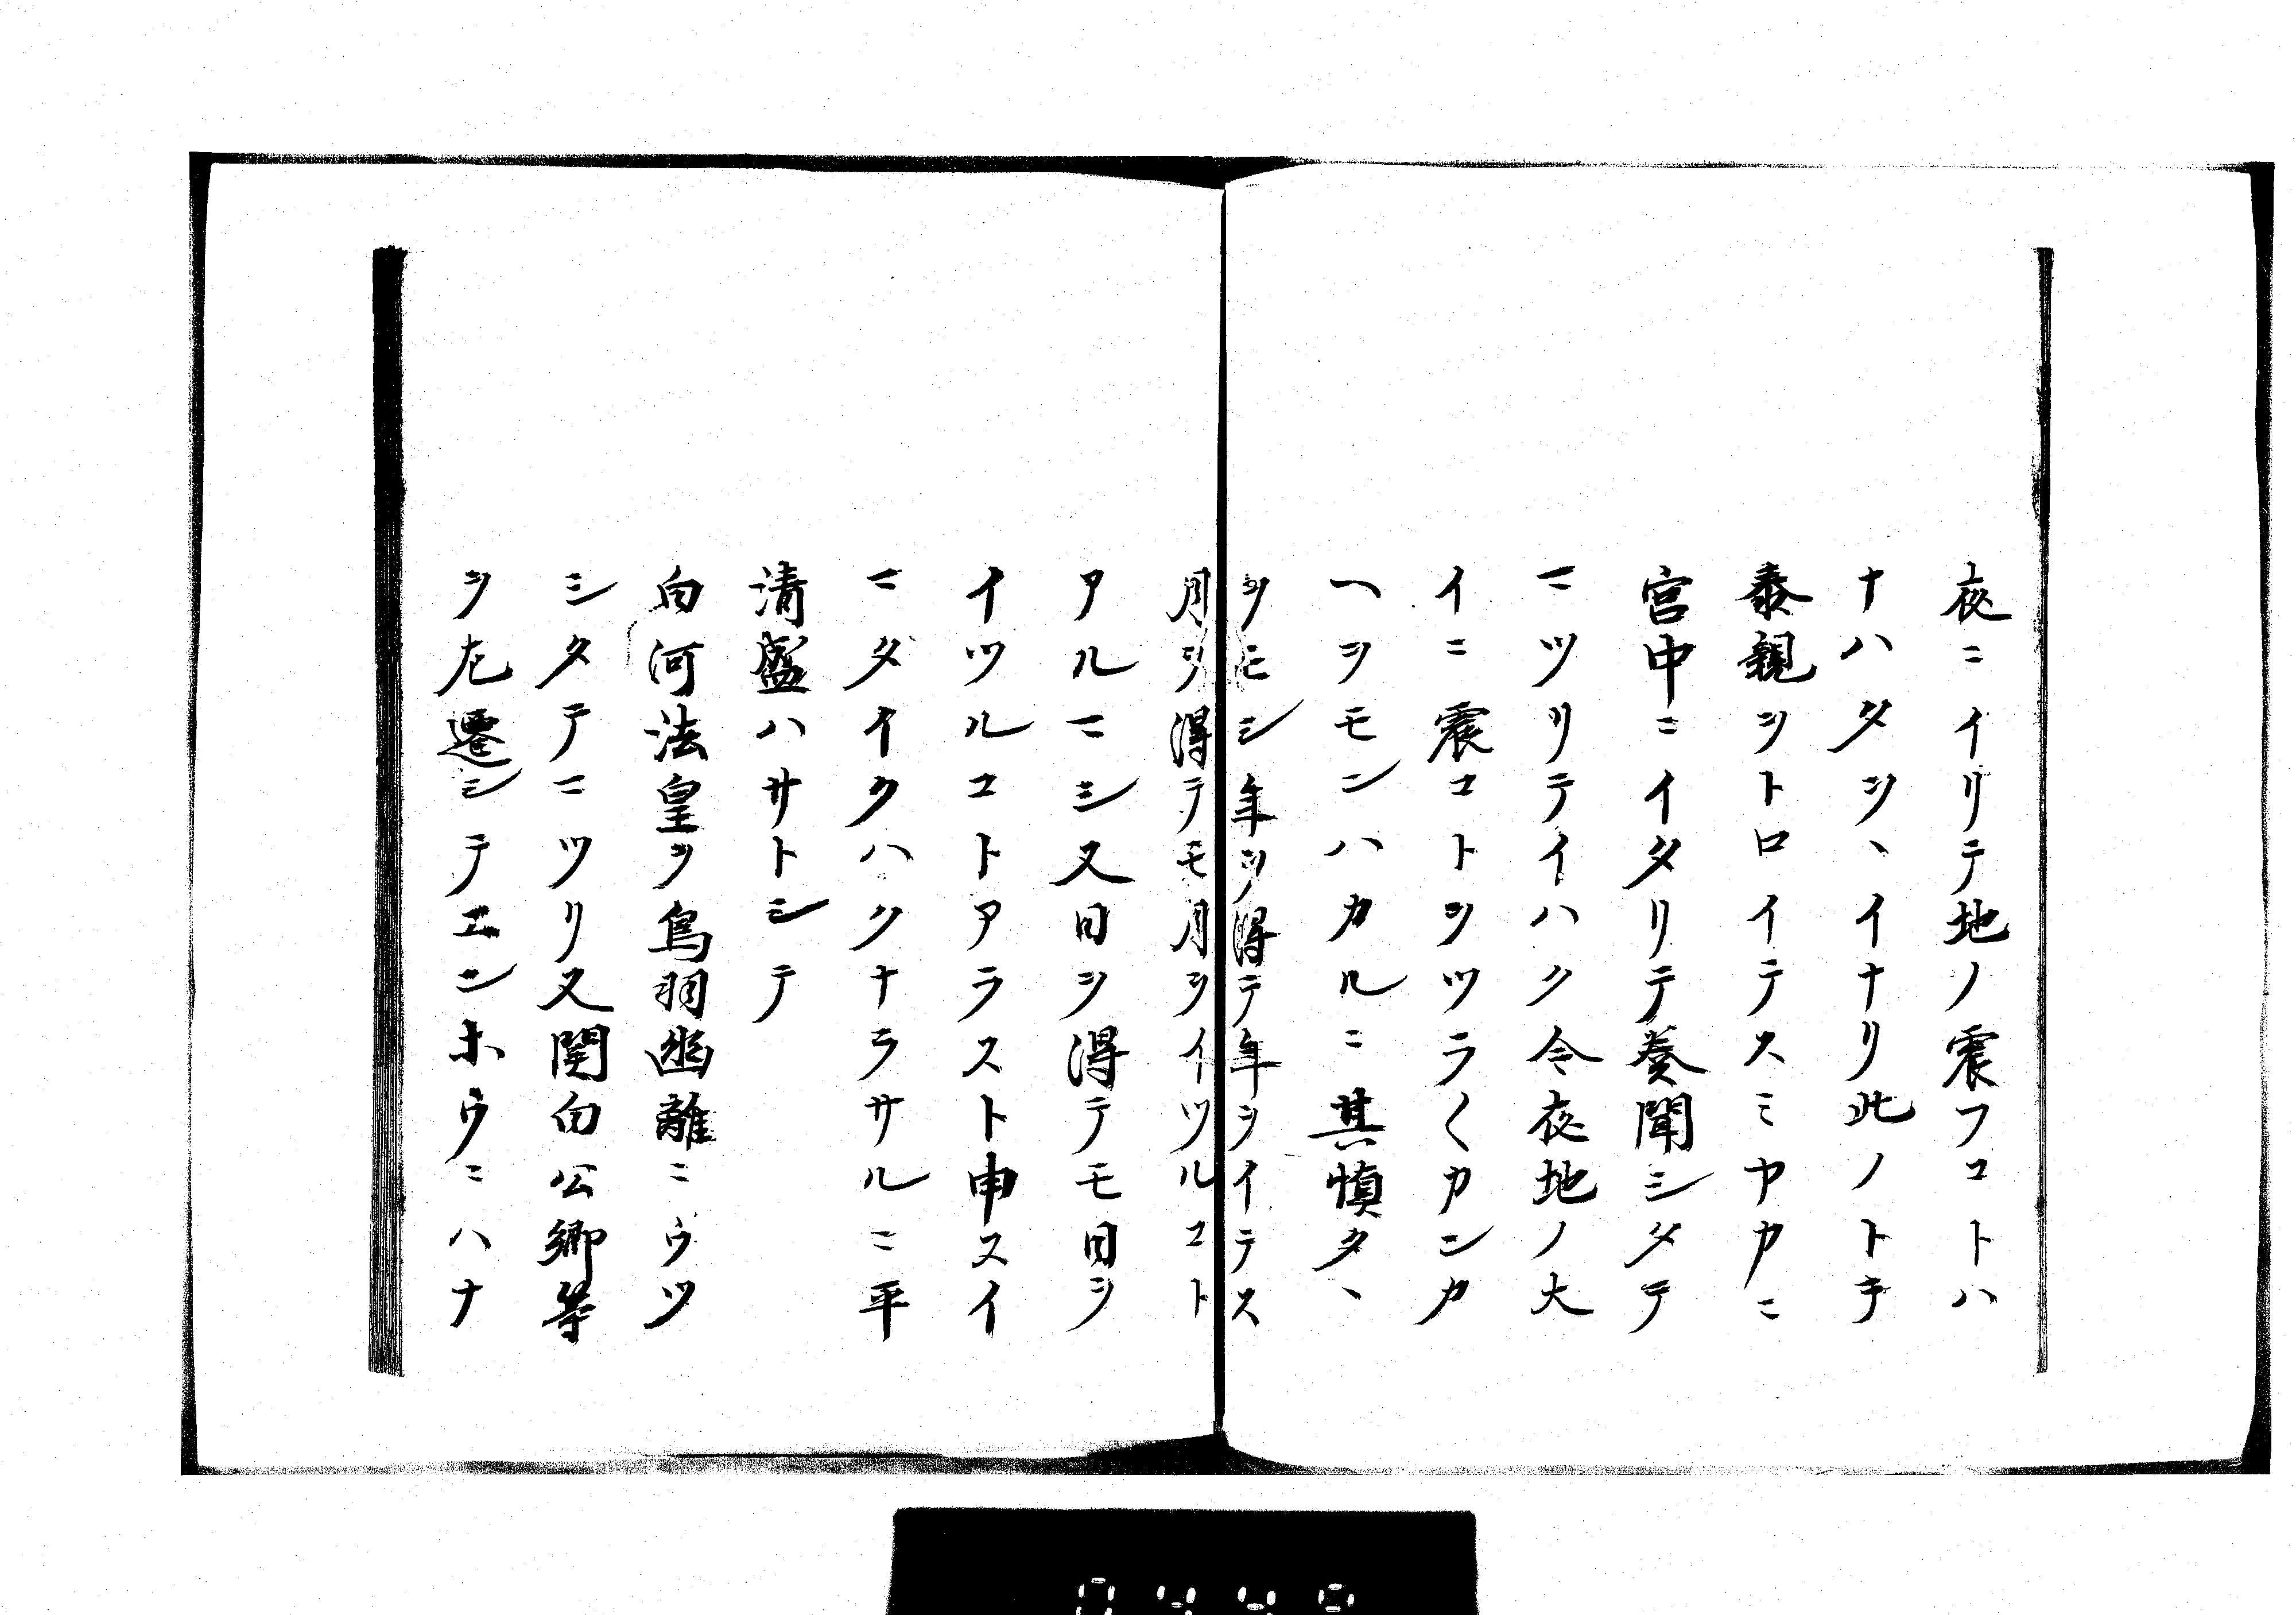 夜ニイリテ地ノ震フコトハ
ナハタシ、イナリ此ノトキ
泰親ヲトロイテスミヤカニ
宮中ニイタリテ奏聞シタテ
マツリテイハク今夜地ノ大
イニ震コトヲツラ〱カンカ
ヘヲモンハカルニ其慎タ、
シモシ年ヲ得テ年ヲイテス
月ヲ得テモ月ヲイツルコト
アルマシ又日ヲ得テモ日ヲ
イツルコトアラスト申スイ
マタイクハクナラサルニ平
清盛ハサトシテ
白河法皇ヲ鳥羽幽離ニウツ
シタテマツリ又関白公卿等
ヲ左遷シテエンホウニハナ